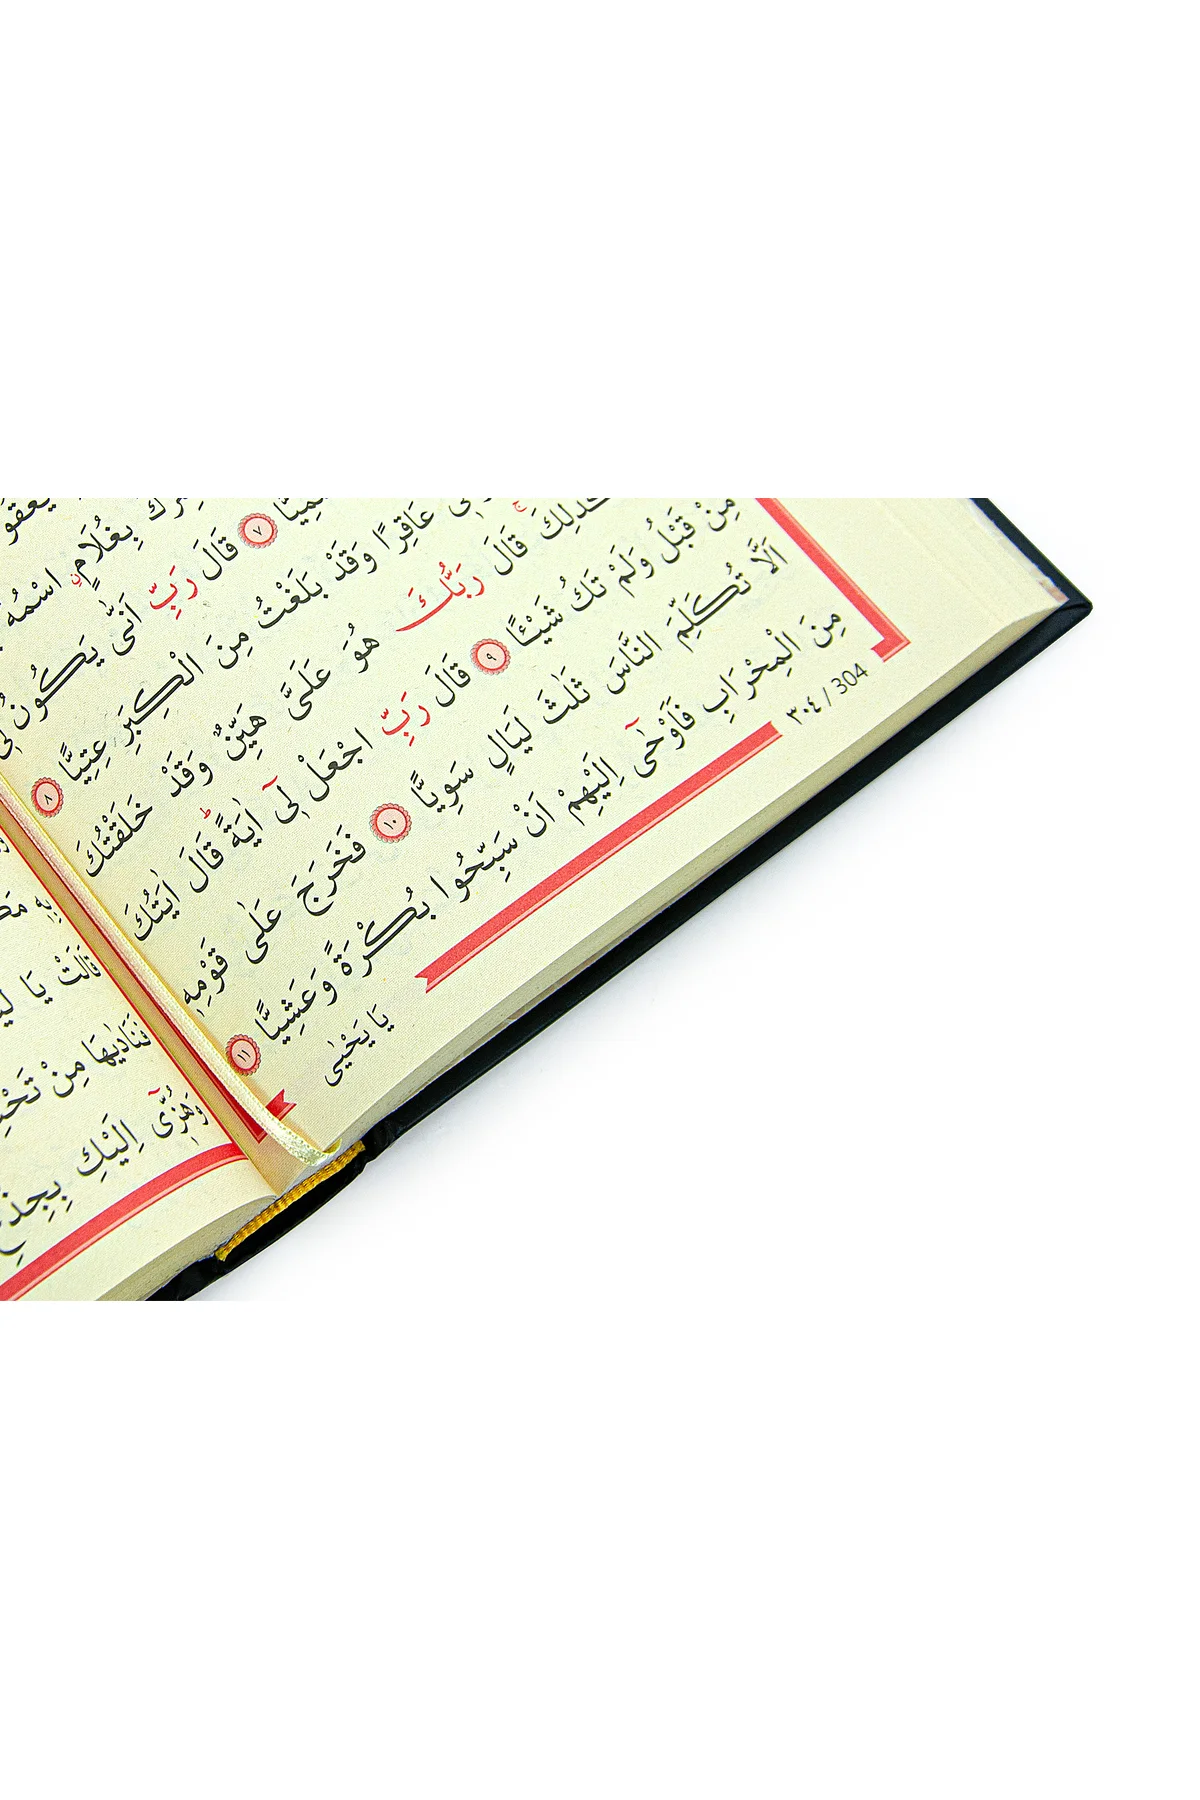 بِغُلَامٍ اسْمُهُ
قَالَ رَبِّ اَنّٰى يَكُونُ لٖى ٧
عَاقِرًا وَقَدْ بَلَغْتُ مِنَ الْكِبَرِ عِتِيًّا ٨
كَذٰلِكَ قَالَ رَبُّكَ هُوَ عَلَىَّ هَيِّنٌ وَقَدْ خَلَقْتُكَ
مِنْ قَبْلُ وَلَمْ تَكُ شَيْئًا ٩ قَالَ رَبِّ اجْعَلْ لٖٓى اٰيَةً قَالَ اٰيَتُكَ
اَلَّا تُكَلِّمَ النَّاسَ ثَلٰثَ لَيَالٍ سَوِيًّا ١٠ فَخَرَجَ عَلٰى قَوْمِهٖ
مِنَ الْمِحْرَابِ فَاَوْحٰٓى اِلَيْهِمْ اَنْ سَبِّحُوا بُكْرَةً وَعَشِيًّا ١١
٣٠٤ / 304
يَا يَحْيٰى
بِهٖ
قَالَتْ يَا
فَنَادٰيهَا مِنْ
وَهُزّٖٓى اِلَيْكِ بِجِذْعِ